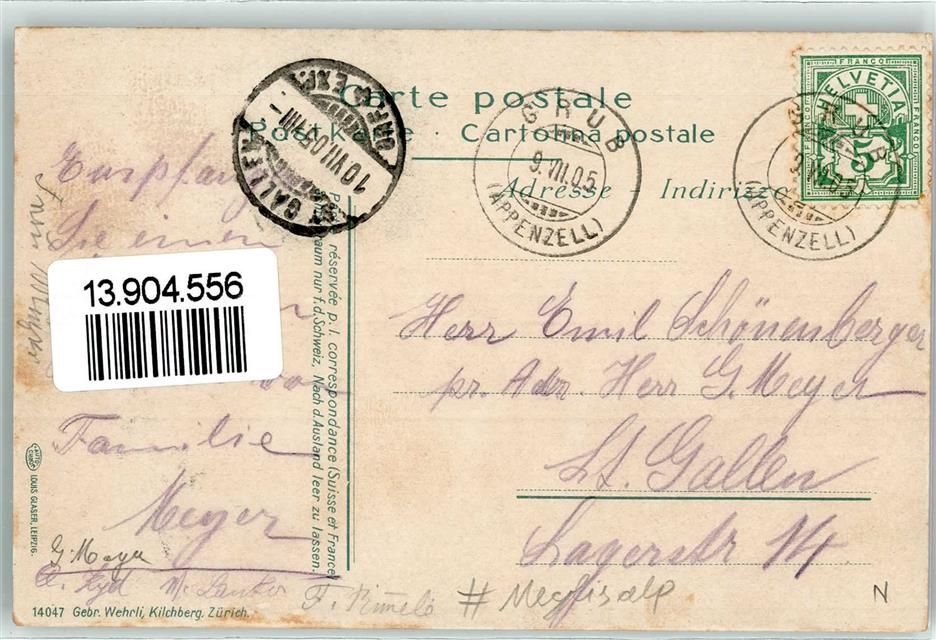 Carte postale
Postkarte · Cartolina postale
Adresse — Indirizzo
FRANCO
HELVETIA
FRANCO
FRANCO
5
GRUB
9.VIII.05
(APPENZELL)
GRUB
(APPENZELL)
ST. GALLEN
10.VIII.05
BRF. EXP.
réservée p. l. correspondance (Suisse et France)
raum nur f. d. Schweiz, Nach d. Ausland leer zu lassen.
Empfangen
Sie einen
Familie
Meyer
G. Meyer
13.904.556
Herr Emil Schönenberger
pr. Adr. Herr G. Meyer
St. Gallen
Lagerstr 14.
# Meglisalp
N
AUTOCHROM
LOUIS GLASER, LEIPZIG.
14047 Gebr. Wehrli, Kilchberg. Zürich.